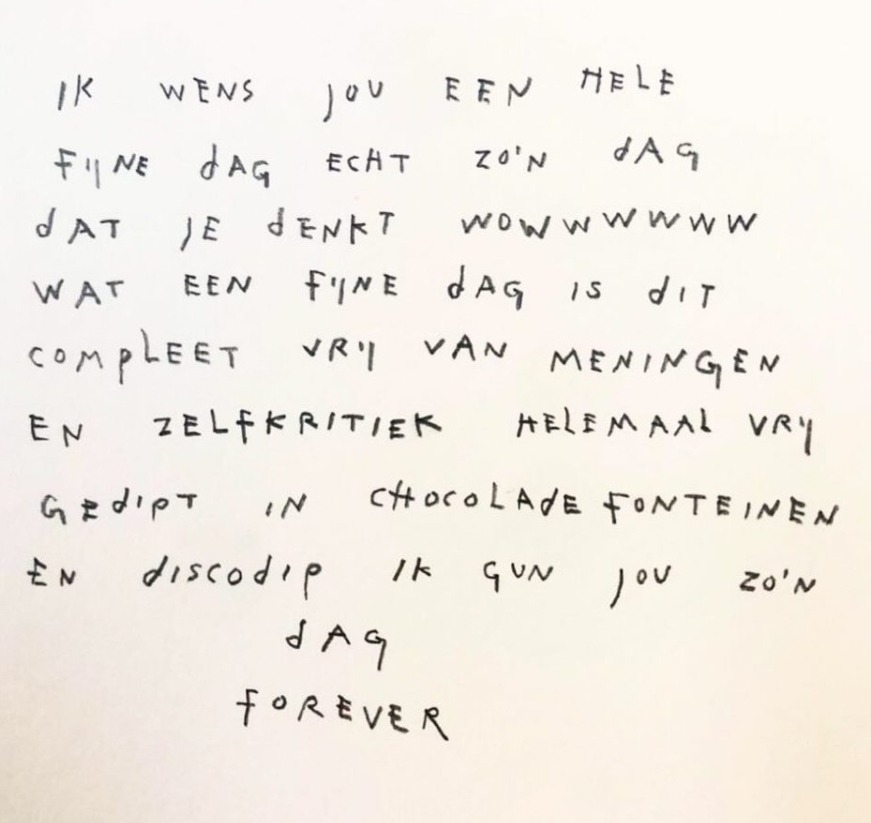 IK WENS JOU EEN HELE
FIJNE dAG ECHT ZO'N dAG
dAT JE dENKT WOWWWWWW
WAT EEN FIJNE dAG IS dIT
COMPLEET VRIJ VAN MENINGEN
EN ZELFKRITIEK HELEMAAL VRIJ
GEdIPT IN CHOCOLAdE FONTEINEN
EN dISCOdIP IK GUN JOU ZO'N
dAG
FOREVER